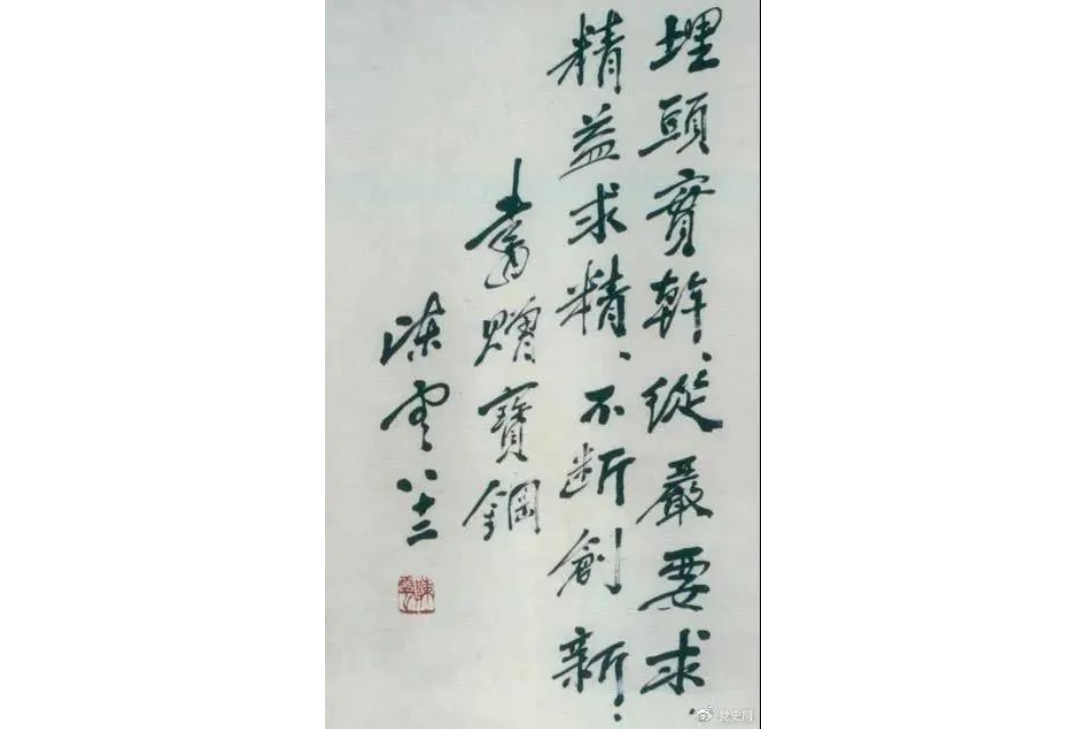 埋頭實幹、從嚴要求、
精益求精、不断創新！
書贈寶鋼
陈雲八十二
陳雲
党史网